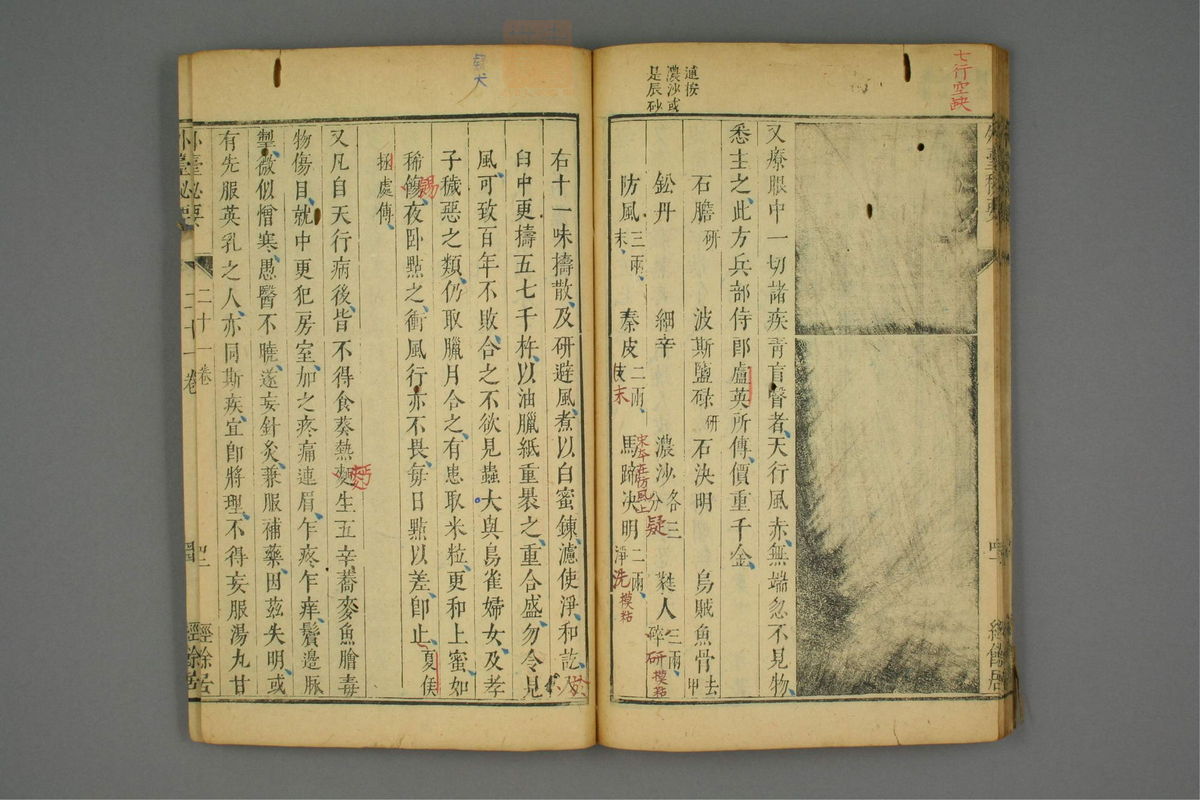 七行空缺
又療眼中一切諸疾青盲瞖者天行風赤無端忽不見物
悉主之此方兵部侍郎盧英所傳價重千金
石膽研 波斯鹽碌研 石決明 烏賊魚骨去甲
鈆丹 細辛 濃沙各三分 蕤人三兩碎
防風三兩末 秦皮二兩 馬蹄决明二兩淨
疑
研
模粘
末
洗
模粘
遠按
濃沙或
是辰砂
右十一味擣散及研避風煮以白蜜鍊濾使淨和訖
臼中更擣五七千杵以油臘紙重褁之重合盛勿令見
風可致百年不敗合之不欲見蟲大與鳥雀婦女及孝
子穢惡之類仍取臘月合之有患取米粒更和上蜜如
稀餳夜卧點之衝風行亦不畏每日點以差卽止夏侯
拯處傳
又凡自天行病後皆不得食葵熱麵生五辛蕎麥魚膾毒
物傷目就中更犯房室加之疼痛連眉乍疼乍痒鬢邊脈
掣微似憎寒愚醫不曉遂妄針灸兼服補藥因茲失明或
有先服英乳之人亦同斯疾宜卽將理不得妄服湯丸甘
外臺秘要
二十一卷
經餘居